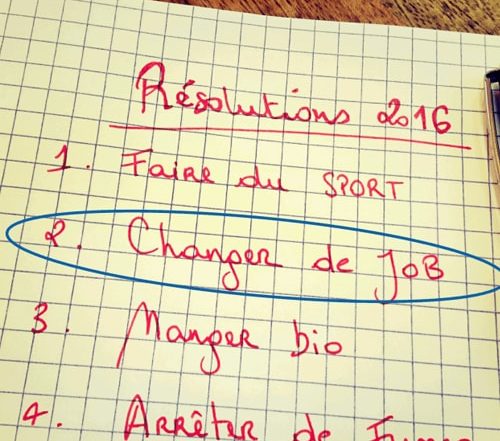 Résolutions 2016
1. Faire du SPORT
2. Changer de JOB
3. Manger bio
4. Arrêter de